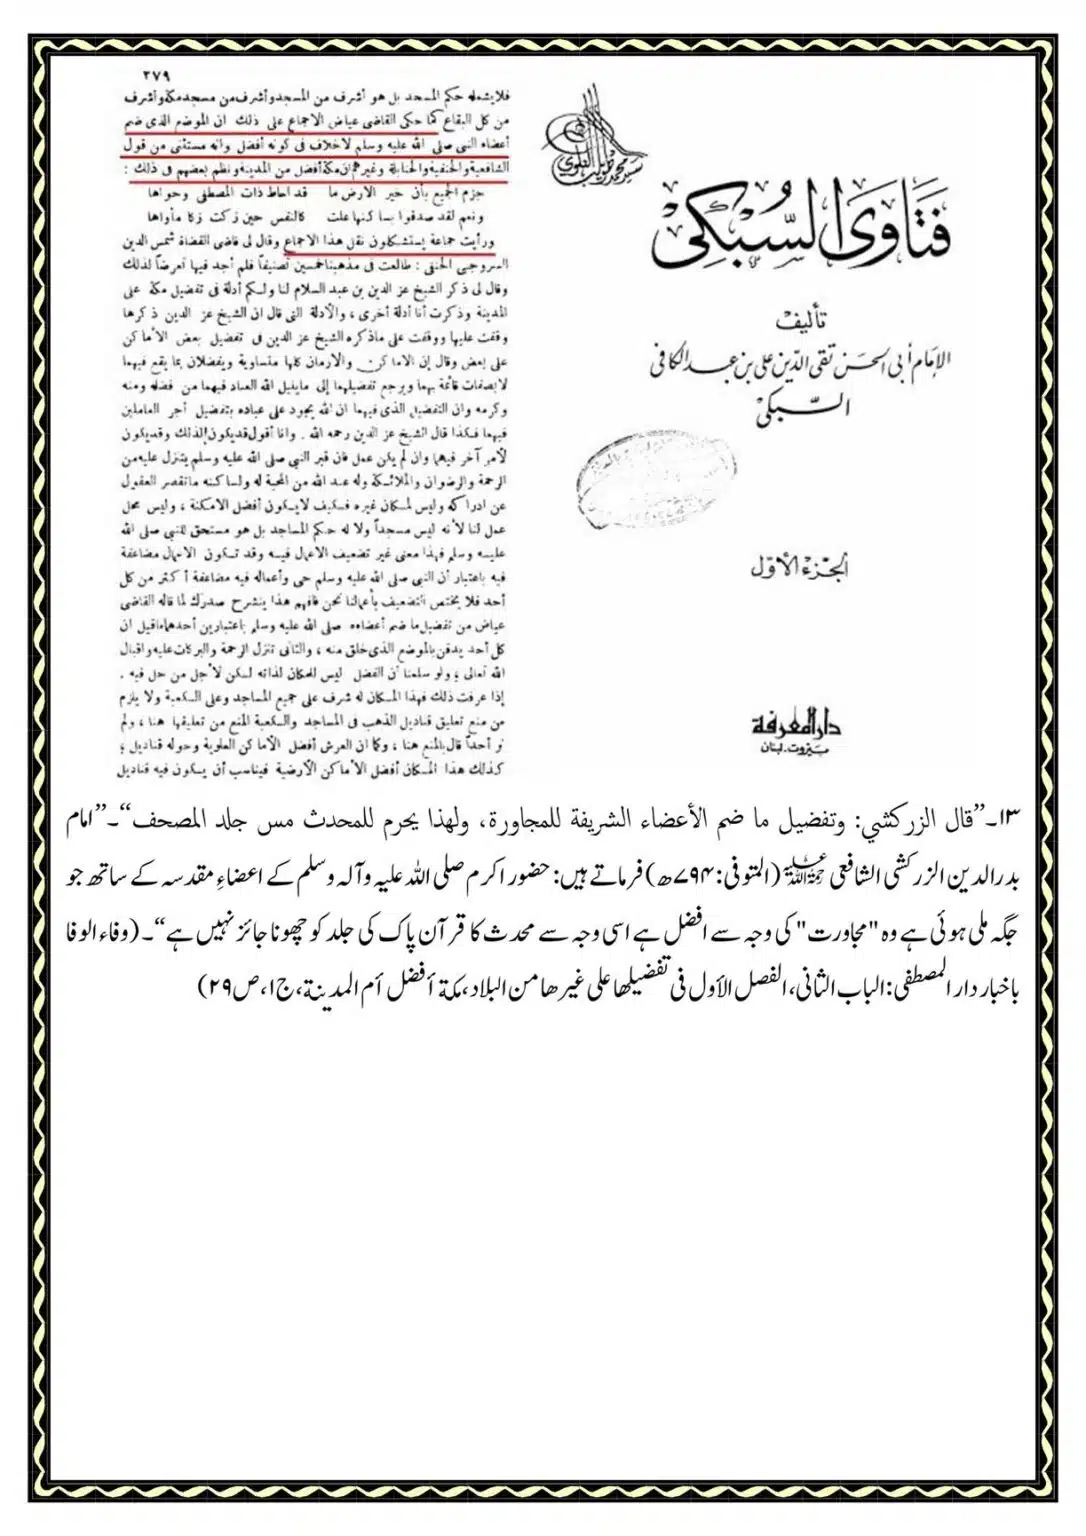 ٢٧٩
فلا يشمله حكم المسجد بل هو أشرف من المسجد وأشرف من مسجد مكة وأشرف
من كل البقاع كما حكى القاضى عياض الاجماع على ذلك ان الموضع الذى ضم
أعضاء النبى صلى الله عليه وسلم لا خلاف فى كونه أفضل وانه مستثنى من قول
الشافعية والحنفية والحنابلة وغيرهم ان مكة أفضل من المدينة ونظم بعضهم فى ذلك :
جزم الجميع بأن خير الارض ما قد احاط ذات المصطفى وحواها
ونعم لقد صدقوا بساكنها علت كالنفس حين زكت زكا مأواها
ورأيت جماعة يستشكلون نقل هذا الاجماع وقال لى قاضى القضاة شمس الدين
السروجى الحنفى : طالعت فى مذهبنا خمسين تصنيفاً فلم أجد فيها تعرضاً لذلك
وقال لى ذكر الشيخ عز الدين بن عبد السلام لنا ولكم أدلة فى تفضيل مكة على
المدينة وذكرت أنا أدلة أخرى ، والأدلة التى قال ان الشيخ عز الدين ذكرها
وقفت عليها ووقفت على ما ذكره الشيخ عز الدين فى تفضيل بعض الأماكن
على بعض وقال إن الاماكن والازمان كلها متساوية ويفضلان بما يقع فيهما
لا بصفات قائمة بهما ويرجع تفضيلهما إلى ما ينيل الله العباد فيهما من فضله ومنه
وكرمه وان التفضيل الذى فيهما ان الله يجود على عباده بتفضيل أجر العاملين
فيهما فكذا قال الشيخ عز الدين رحمه الله . وانا أقول قد يكون لذلك وقد يكون
لأمر آخر فيهما وان لم يكن عمل فان قبر النبى صلى الله عليه وسلم يتنزل عليه من
الرحمة والرضوان والملائكة وله عند الله من المحبة له ولساكنه ما تقصر العقول
عن ادراكه وليس لمكان غيره فكيف لا يكون أفضل الامكنة ، وليس محل
عمل لنا لأنه ليس مسجداً ولا له حكم المساجد بل هو مستحق للنبى صلى الله
عليه وسلم فهذا معنى غير تضعيف الاعمال فيه وقد تكون الاعمال مضاعفة
فيه باعتبار أن النبى صلى الله عليه وسلم حى وأعماله فيه مضاعفة أكثر من كل
أحد فلا يختص التضعيف بأعمالنا نحن فافهم هذا ينشرح صدرك لما قاله القاضى
عياض من تفضيل ما ضم أعضاءه صلى الله عليه وسلم باعتبارين أحدهما ما قيل ان
كل أحد يدفن بالموضع الذى خلق منه ، والثانى تنزل الرحمة والبركات عليه واقبال
الله تعالى ؛ ولو سلمنا أن الفضل ليس للمكان لذاته لكن لأجل من حل فيه .
إذا عرفت ذلك فهذا المكان له شرف على جميع المساجد وعلى الكعبة ولا يلزم
من منع تعليق قناديل الذهب فى المساجد والكعبة المنع من تعليقها هنا ، ولم
نر أحداً قال بالمنع هنا ، وكما ان العرش أفضل الأماكن العلوية وحوله قناديل ؛
كذلك هذا المكان أفضل الأماكن الأرضية فيناسب أن يكون فيه قناديل
فَتَاوَى السُّبْكِي
تأليف
الإمَام أبى الحسَن تقى الدّين على بن عبد الكافى
السّبكى
الجزء الأول
دار المعرفة
بيروت. لبنان
۱۳۔”قال الزركشي: وتفضيل ما ضم الأعضاء الشريفة للمجاورة، ولهذا يحرم للمحدث مس جلد المصحف“۔”امام
بدرالدین الزرکشی الشافعی رحمۃ اللہ علیہ (المتوفی: ۷۹۴ھ) فرماتے ہیں: حضور اکرم صلی اللہ علیہ وآلہ وسلم کے اعضاءِ مقدسہ کے ساتھ جو
جگہ ملی ہوئی ہے وہ "مجاورت" کی وجہ سے افضل ہے اسی وجہ سے محدث کا قرآن پاک کی جلد کو چھونا جائز نہیں ہے“۔ (وفاء الوفا
باخبار دار المصطفی: الباب الثانی، الفصل الأول فی تفضیلها علی غیرها من البلاد، مكة أفضل أم المدينة، ج۱، ص۲۹)